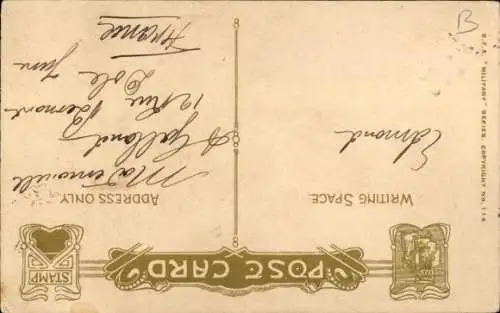 POST CARD
STAMP
WRITING SPACE.
ADDRESS ONLY.
Edmond
Mademoiselle
A Galland
12 Rue Vernont
Dole Jura
France
B
E.F.A. "MILITARY" SERIES. COPYRIGHT NO. 114